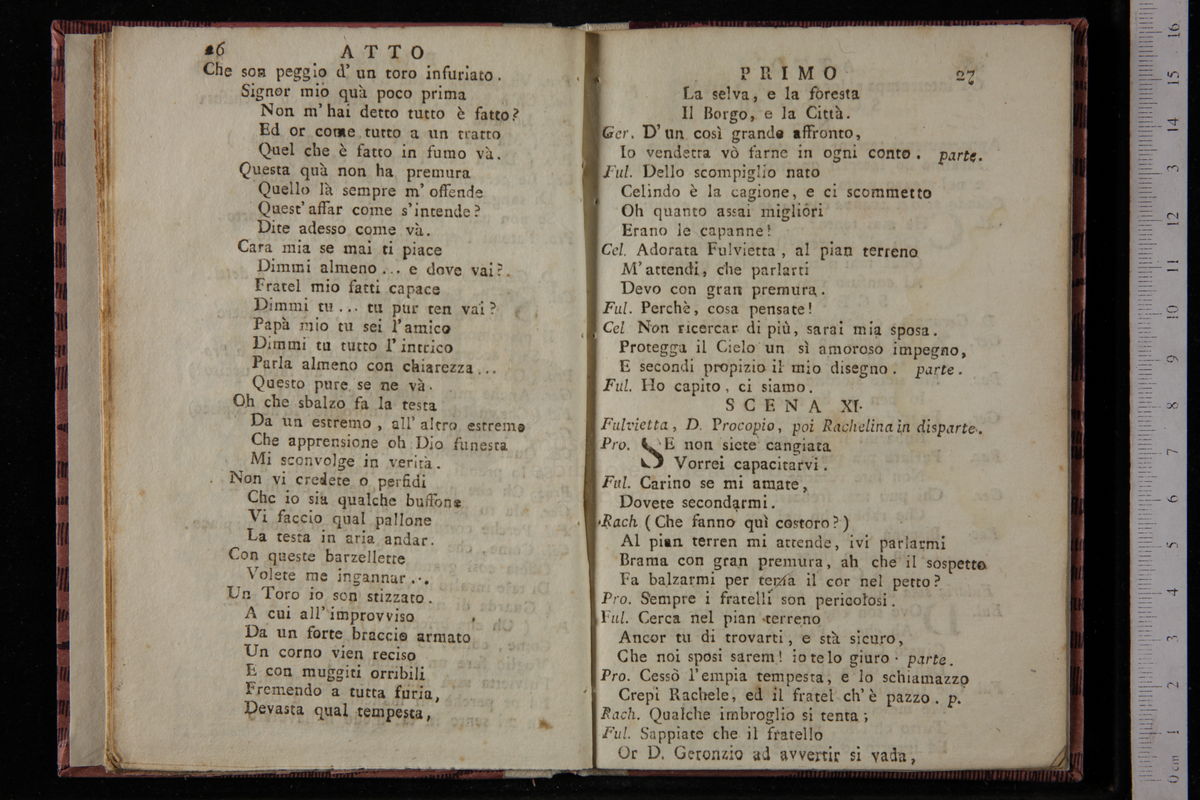 26 ATTO
Che son peggio d' un toro infuriato.
Signor mio quà poco prima
Non m' hai detto tutto è fatto?
Ed or come tutto a un tratto
Quel che è fatto in fumo và.
Questa quà non ha premura
Quello là sempre m' offende
Quest' affar come s' intende?
Dite adesso come và.
Cara mia se mai ti piace
Dimmi almeno ... e dove vai?
Fratel mio fatti capace
Dimmi tu ... tu pur ten vai?
Papà mio tu sei l' amico
Dimmi tu tutto l' intrico
Parla almeno con chiarezza ...
Questo pure se ne và.
Oh che sbalzo fa la testa
Da un estremo, all' altro estremo
Che apprensione oh Dio funesta
Mi sconvolge in verità.
Non vi credete o perfidi
Che io sia qualche buffone
Vi faccio qual pallone
La testa in aria andar.
Con queste barzellette
Volete me ingannar ...
Un Toro io son stizzato.
A cui all' improvviso
Da un forte braccio armato
Un corno vien reciso
E con muggiti orribili
Fremendo a tutta furia,
Devasta qual tempesta,
PRIMO 27
La selva, e la foresta
Il Borgo, e la Città.
Ger. D' un così grande affronto,
Io vendetta vò farne in ogni conto. parte.
Ful. Dello scompiglio nato
Celindo è la cagione, e ci scommetto
Oh quanto assai migliori
Erano le capanne!
Cel. Adorata Fulvietta, al pian terreno
M' attendi, che parlarti
Devo con gran premura.
Ful. Perchè, cosa pensate!
Cel Non ricercar di più, sarai mia sposa.
Protegga il Cielo un sì amoroso impegno,
E secondi propizio il mio disegno. parte.
Ful. Ho capito, ci siamo.
SCENA XI.
Fulvietta, D. Procopio, poi Rachelina in disparte.
Pro. SE non siete cangiata
Vorrei capacitarvi.
Ful. Carino se mi amate,
Dovete secondarmi.
Rach (Che fanno quì costoro?)
Al pian terren mi attende, ivi parlarmi
Brama con gran premura, ah che il sospetto
Fa balzarmi per tema il cor nel petto?
Pro. Sempre i fratelli son pericolosi.
Ful. Cerca nel pian terreno
Ancor tu di trovarti, e stà sicuro,
Che noi sposi sarem! io te lo giuro. parte.
Pro. Cessò l' empia tempesta, e lo schiamazzo
Crepi Rachele, ed il fratel ch' è pazzo. p.
Rach. Qualche imbroglio si tenta;
Ful. Sappiate che il fratello
Or D. Geronzio ad avvertir si vada,
0 cm 1 2 3 4 5 6 7 8 9 10 11 12 13 14 15 16